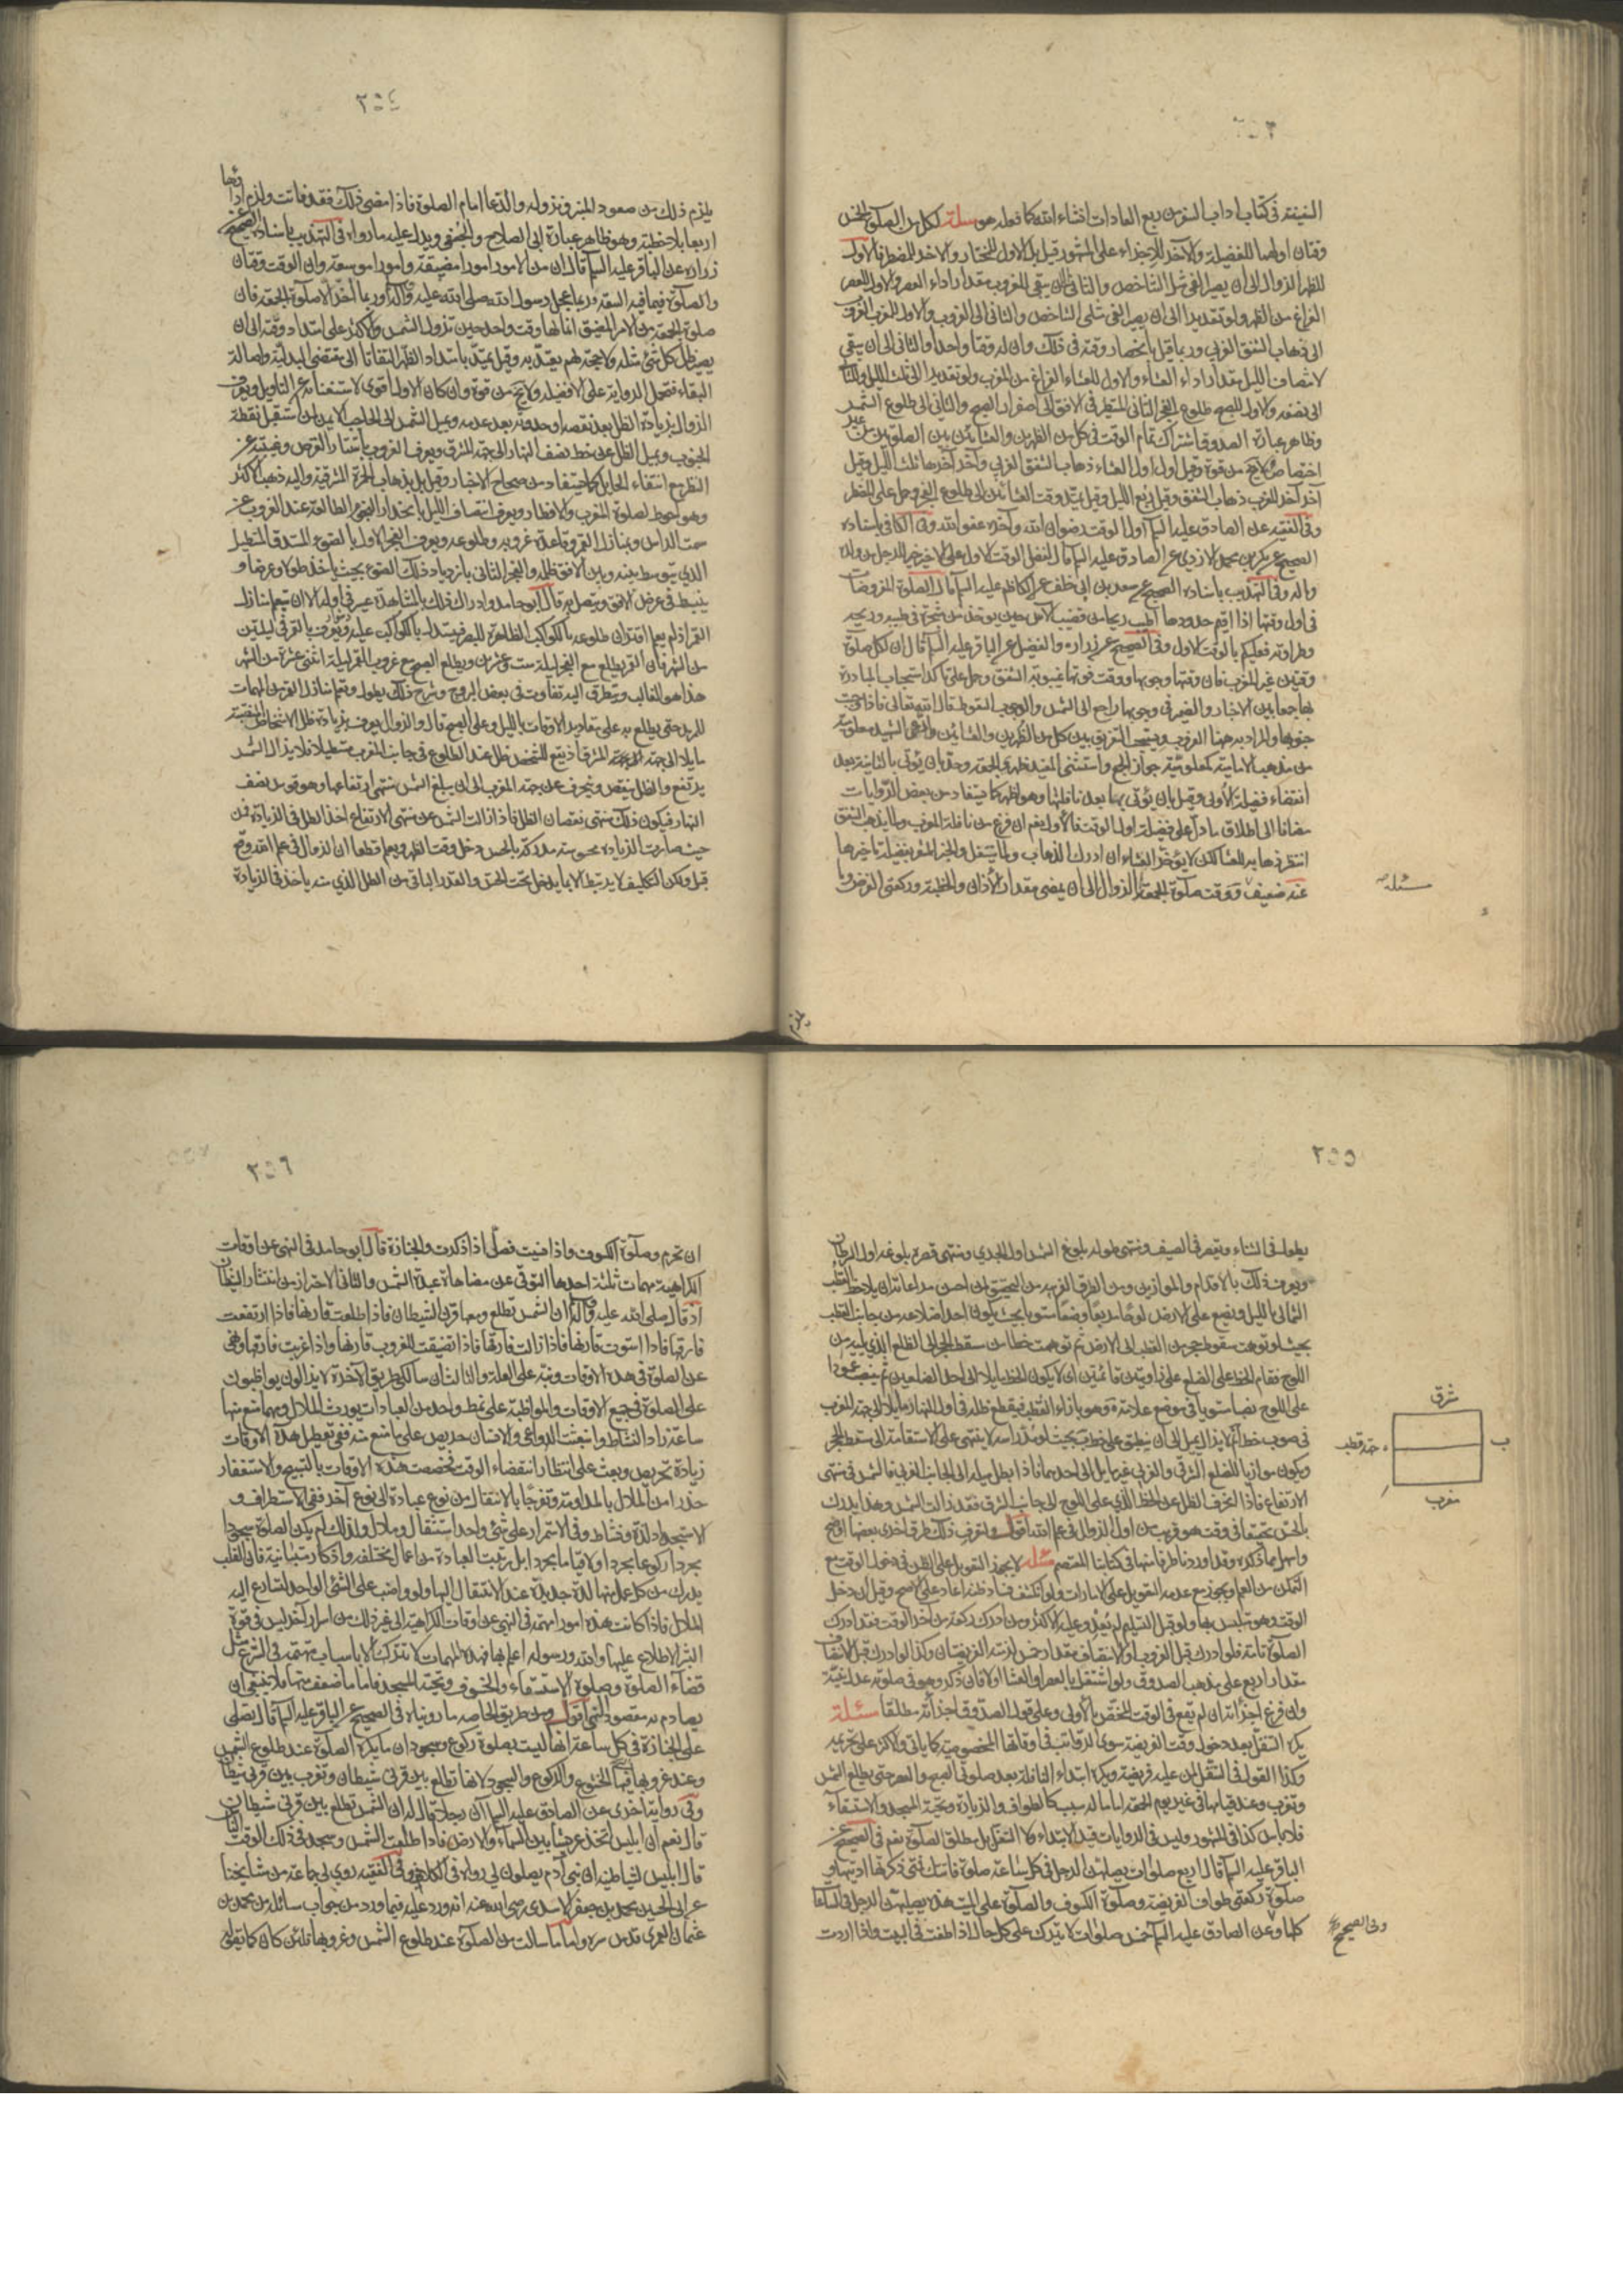 ٢٥٣
السفينة في كتاب اداب السفر من ربع العادات انشاء الله كما فعله هو مسئلة لكل من الصلوة الخمس
وقتان اولهما للفضيلة والآخر للاجزاء على المشهور وقيل بل الاول للمختار والاخر للمضطر فالاول
للظهر الزوال الى ان يصير الفئ مثل الشاخص والثاني الى ان يبقى للغروب مقدار اداء العصر والاول للعصر
الفراغ من الظهر ولو تقديرا الى ان يصير الفئ مثلي الشاخص والثاني الى الغروب والاول للمغرب الغروب
الى ذهاب الشفق الغربي وربما قيل بانحصار وقته في ذلك وان له وقتا واحدا والثاني الى ان يبقى
لانتصاف الليل مقدار اداء العشاء والاول للعشاء الفراغ من المغرب ولو تقديرا الى ثلث الليل والثاني
الى نصفه والاول للصبح طلوع الفجر الثاني المستطير في الافق الى اصفرار الصبح والثاني الى طلوع الشمس
وظاهر عبارة الصدوق اشتراك تمام الوقت في كل من الظهرين والعشائين بين الصلوتين من غير
اختصاص ولا يخ من قوة وقيل اول اول العشاء ذهاب الشفق الغربي وآخر آخرها ثلث الليل وقيل
آخر آخر المغرب ذهاب الشفق وقيل ربع الليل وقيل يمتد وقت العشائين الى طلوع الفجر وحمل على المضطر
وفي الفقيه عن الصادق عليه السلم اول الوقت رضوان الله وآخره عفو الله وفي الكافي باسناده
الصحيح عن بكر بن محمد الازدي عن الصادق عليه السلم قال لفضل الوقت الاول على الاخير خير للرجل من ولده
وماله وفي التهذيب باسناده الصحيح عن سعد بن ابي خلف عن الكاظم عليه السلم قال الصلوة المفروضات
في اول وقتها اذا اقيم حدودها اطيب ريحا من قضيب الآس حين يوخذ من شجره في طيبه وريحه
وطراوته فعليكم بالوقت الاول وفي الصحيح عن زرارة والفضيل عن الباقر عليه السلم قال ان لكل صلوة
وقتين غير المغرب فان وقتها وجوبها ووقت فوتها غيبوبة الشفق وحمل على تاكد استحباب المبادرة
بها جمعا بين الاخبار والضمير في وجوبها راجع الى الشمس والوجوب السقوط قال الله تعالى فاذا وجبت
جنوبها والمراد به ههنا الغروب ويستحب التفريق بين كل من الظهرين والعشائين وادعى الشهيد معلوميته
من مذهب الامامية كمعلومية جواز الجمع واستثنى المفيد ظهري الجمعة وحده ان يؤتى بالثانية بعد
انقضاء فضيلة الأولى وقيل بان يؤتى بها بعد نافلتها وهو اظهر كما يستفاد من بعض الروايات
مضافا الى اطلاق ما دل على فضيلة اول الوقت فالأولى نعم ان فرغ من نافلة المغرب ولما يذهب الشفق
انتظر ذهابه للعشا لكن لا يؤخر العشاء ان ادرك الذهاب ولما يتنفل والخبر المشعر بفضيلة تاخيرها
عنه ضعيف ووقت صلوة الجمعة الزوال الى ان يمضى مقدار الأذان والخطبة وركعتي الفرض وما
مسئلة
يلزم
٢٥٤
يلزم ذلك من صعود المنبر ونزوله والدعا امام الصلوة فاذا مضى ذلك فقد فاتت ولزم اداؤها
اربعا بلا خطبة وهو ظاهر عبارة ابي الصلاح والجعفي ويدل عليه ما رواه في التهذيب باسناده الصحيح عن
زرارة عن الباقر عليه السلم قال ان من الامور امورا مضيقة وامورا موسعة وان الوقت وقتان
والصلوة فيما فيه السعة فربما عجل رسول الله صلى الله عليه وآله وربما أخر الا صلوة الجمعة فان
صلوة الجمعة من الامر المضيق انما لها وقت واحد حين تزول الشمس والاكثر على امتداد وقته الى ان
يصير ظل كل شئ مثله ولا حجة لهم يعتد به وقيل يمتد بامتداد الظهر التفاتا الى مقتضى البدلية واصالة
البقاء فتحمل الرواية على الافضلية ولا يخ من قوة وان كان الاول اقوى لاستغنائه عن التاويل ويعرف
الزوال بزيادة الظل بعد نقصه او حدوثه بعد عدمه وبميل الشمس الى الحاجب الايمن لمن استقبل نقطة
الجنوب وبميل الظل على خط نصف النهار الى جهة المشرق ويعرف الغروب باستتار القرص وغيبته عن
النظر مع انتفاء الحايل كما يستفاد من صحاح الاخبار وقيل بل بذهاب الحمرة المشرقية واليه ذهب الاكثر
وهو احوط لصلوة المغرب والافطار ويعرف انتصاف الليل بانحدار النجوم الطالعة عند الغروب عن
سمت الراس وبمنازل القمر وقاعدة غروبه وطلوعه ويعرف الفجر الاول بالضوء المستدق المستطيل
الذي يتوسط بينه وبين الافق ظلمة والفجر الثاني بازدياد ذلك الضوء بحيث ياخذ طولا وعرضا و
ينبسط في عرض الافق ويتصل به قال ابو حامد وادراك ذلك بالمشاهدة عسر في اوله الا ان تعلم منازل
القمر اذ لم يعلم اقتران طلوعه بالكواكب الظاهرة للبصر فيستدل بالكواكب عليه ويعرف بالقمر في ليلتين
من الشهر فان القمر يطلع مع الفجر ليلة ست وعشرين ويطلع الصبح مع غروب القمر ليلة اثنى عشرة من الشهر
هذا هو الغالب ويتطرق اليه تفاوت في بعض البروج وشرح ذلك يطول وتعلم منازل القمر من المهمات
للمريد حتى يطلع به على مقادير الاوقات بالليل وعلى الصبح قال والزوال يعرف بزيادة ظل الاشخاص المنتصبة
مايلا الى جهة المشرق اذ يقع للشخص ظل عند الطلوع في جانب المغرب مستطيلا فلا يزال الشمس
يرتفع والظل ينقص وينحرف عن جهة المغرب الى ان يبلغ الشمس منتهى ارتفاعها وهو قوس نصف
النهار فيكون ذلك منتهى نقصان الظل فاذا زالت الشمس عن منتهى الارتفاع اخذ الظل في الزيادة فمن
حيث صارت الزيادة محسوسة مدركة بالحس دخل وقت الظهر ويعلم قطعا ان الزوال في علم الله وقع
قبل ولكن التكليف لا يرتبط الا بما يدخل تحت الحس والقدر الباقي من الظل الذي منه ياخذ في الزيادة
٢٥٥
يطول في الشتاء ويقصر في الصيف ومنتهى طوله بلوغ الشمس اول الجدي ومنتهى قصره بلوغه اول السرطان
ويعرف ذلك بالاقدام والموازين ومن الطرق القريبة من التحقيق لمن احسن مراعاته ان يلاحظ القطب
الشمالي بالليل ويضع على الارض لوحا مربعا وضعا مستويا بحيث يكون احد اضلاعه من جانب القطب
بحيث لو توهمت سقوط حجر من القطب الى الارض ثم توهمت خطا من مسقط الحجر الى الضلع الذي يليه من
اللوح لقام الخط على الضلع على زاويتين قائمتين اي لا يكون الخط مايلا الى احد الضلعين ثم ينصب عمودا
على اللوح نصبا مستويا في موضع علامة ه وهو بازاء القطب فيقع ظله في اول النهار مايلا الى جهة المغرب
في صوب خط آ ثم لا يزال يميل الى ان ينطبق على خط ب بحيث لو مد راسه لانتهى على الاستقامة الى مسقط الحجر
ويكون موازيا للضلع الشرقي والغربي غير مايل الى احدهما فاذا بطل ميله الى الجانب الغربي فالشمس في منتهى
الارتفاع فاذا انحرف الظل عن الخط الذي على اللوح الى جانب الشرق فقد زالت الشمس وهذا يدرك
بالحس تحقيقا في وقت هو قريب من اول الزوال في علم الله اقول ولمعرفة ذلك طرق اخرى بعضها اوضح
واسهل مما ذكره وقد اوردنا طرفا منها في كتابنا المعتصم مسئلة لا يجوز التعويل على الظن في دخول الوقت مع
التمكن من العلم ويجوز مع عدمه التعويل على الامارات ولو انكشف فساد ظنه اعاد على الاصح وقيل ان دخل
الوقت وهو متلبس بها ولو قبل التسليم لم يعد وعليه الاكثر ومن ادرك ركعة من آخر الوقت فقد ادرك
الصلوة تامة فلو ادرك قبل الغروب او الانتصاف مقدار خمس لزمته الفريضتان وكذا لو ادرك قبل الانتصاف
مقدار اربع على مذهب الصدوق ولو اشتغل بالعصر او العشا اولا فان ذكر وهو في صلوته عدل بنيته
وان فرغ اجزأته ان لم يقع في الوقت المختص بالأولى وعلى قول الصدوق اجزأته مطلقا مسئلة
يكره التنفل بعد دخول وقت الفريضة سوى الرواتب في اوقاتها المخصوصة كما ياتي والاكثر على تحريمه
وكذا القول في التنفل لمن عليه فريضة ويكره ابتداء النافلة بعد صلوتي الصبح والعصر حتى يطلع الشمس
وتغرب وعند قيامها في غير يوم الجمعة اما ما له سبب كالطواف والزيارة وتحية المسجد والاستسقاء
فلا باس كذا في المشهور وليس في الروايات قيد الابتداء ولا التنفل بل مطلق الصلوة نعم في الصحيح عن
الباقر عليه السلم قال اربع صلوات يصليهن الرجل في كل ساعة صلوة فاتتك فمتى ذكرتها اديتها و
صلوة ركعتي طواف الفريضة وصلوة الكسوف والصلوة على الميت هذه يصليهن الرجل في الساعات
كلها وعن الصادق عليه السلم خمس صلوات لا تترك على كل حال اذا طفت في البيت واذا اردت
شرق
ب
جهة قطب
ه
مغرب
وفي الصحيح
٢٥٦
ان تحرم وصلوة الكسوف واذا نسيت فصل اذا ذكرت والجنازة قال ابو حامد في النهى عن اوقات
الكراهية مهمات ثلثة احدها التوقي عن مضاهاة عبدة الشمس والثاني الاحتراز من انتشار الشيطان
اذ قال صلى الله عليه وآله ان الشمس تطلع ومعها قرن الشيطان فاذا طلعت قارنها فاذا ارتفعت
فارقها فاذا استوت قارنها فاذا زالت فارقها فاذا تضيقت للغروب قارنها واذا غربت فارقها ونهى
عن الصلوة في هذه الاوقات ونبه على العلة والثالث ان سالكي طريق الآخرة لا يزالون يواظبون
على الصلوة في جميع الاوقات والمواظبة على نمط واحد من العبادات يورث الملال ومهما منع منها
ساعة زاد النشاط وانبعثت الدواعي والانسان حريص على ما منع منه ففي تعطيل هذه الاوقات
زيادة تحريص وبعث على انتظار انقضاء الوقت فخصصت هذه الاوقات بالتسبيح والاستغفار
حذرا من الملال بالمداومة وتفرجا بالانتقال من نوع عبادة الى نوع آخر ففي الاستطراف و
الاستجداد لذة ونشاط وفي الاستمرار على شئ واحد استثقال وملال ولذلك لم يكن الصلوة سجودا
مجردا ركوعا مجردا ولا قياما مجردا بل رتبت العبادة من اعمال مختلفة واذكار متباينة فان القلب
يدرك من كل عمل منها لذة جديدة عند الانتقال اليها ولو واضب على الشئ الواحد لتسارع اليه
الملال فاذا كانت هذه امورا مهمة في النهى عن اوقات الكراهية الى غير ذلك من اسرار آخر ليس في قوة
البشر الاطلاع عليها والله ورسوله اعلم بها فهذه المهمات لا تترك الا باسباب مهمة في الشرع مثل
قضاء الصلوة وصلوة الاستسقاء والخسوف وتحية المسجد فاما ما ضعف منها فلا ينبغي ان
يصادم به مقصود النهى اقول ومن طريق الخاصة ما رويناه في الصحيح عن الباقر عليه السلم قال يصلى
على الجنازة في كل ساعة انها ليست بصلوة ركوع وسجود ان ما يكره الصلوة عند طلوع الشمس
وعند غروبها التي فيها الخشوع والركوع والسجود لانها تطلع بين قرني شيطان وتغرب بين قرني شيطان
وفي رواية اخرى عن الصادق عليه السلم ان رجلا قال له ان الشمس تطلع بين قرني شيطان
قال نعم ان ابليس اتخذ عرشا بين السماء والارض فاذا طلعت الشمس وسجد في ذلك الوقت الناس
قال ابليس لشياطينه ان بني آدم يصلون لي رواه في الكافي وفي الفقيه روى لي جماعة من مشايخنا
عن ابي الحسين محمد بن جعفر الاسدي رضي الله عنه انه ورد عليه فيما ورد من جواب مسائله من محمد بن
عثمان العمري قدس سره واما ما سالت من الصلوة عند طلوع الشمس وغروبها فلئن كان كما يقول